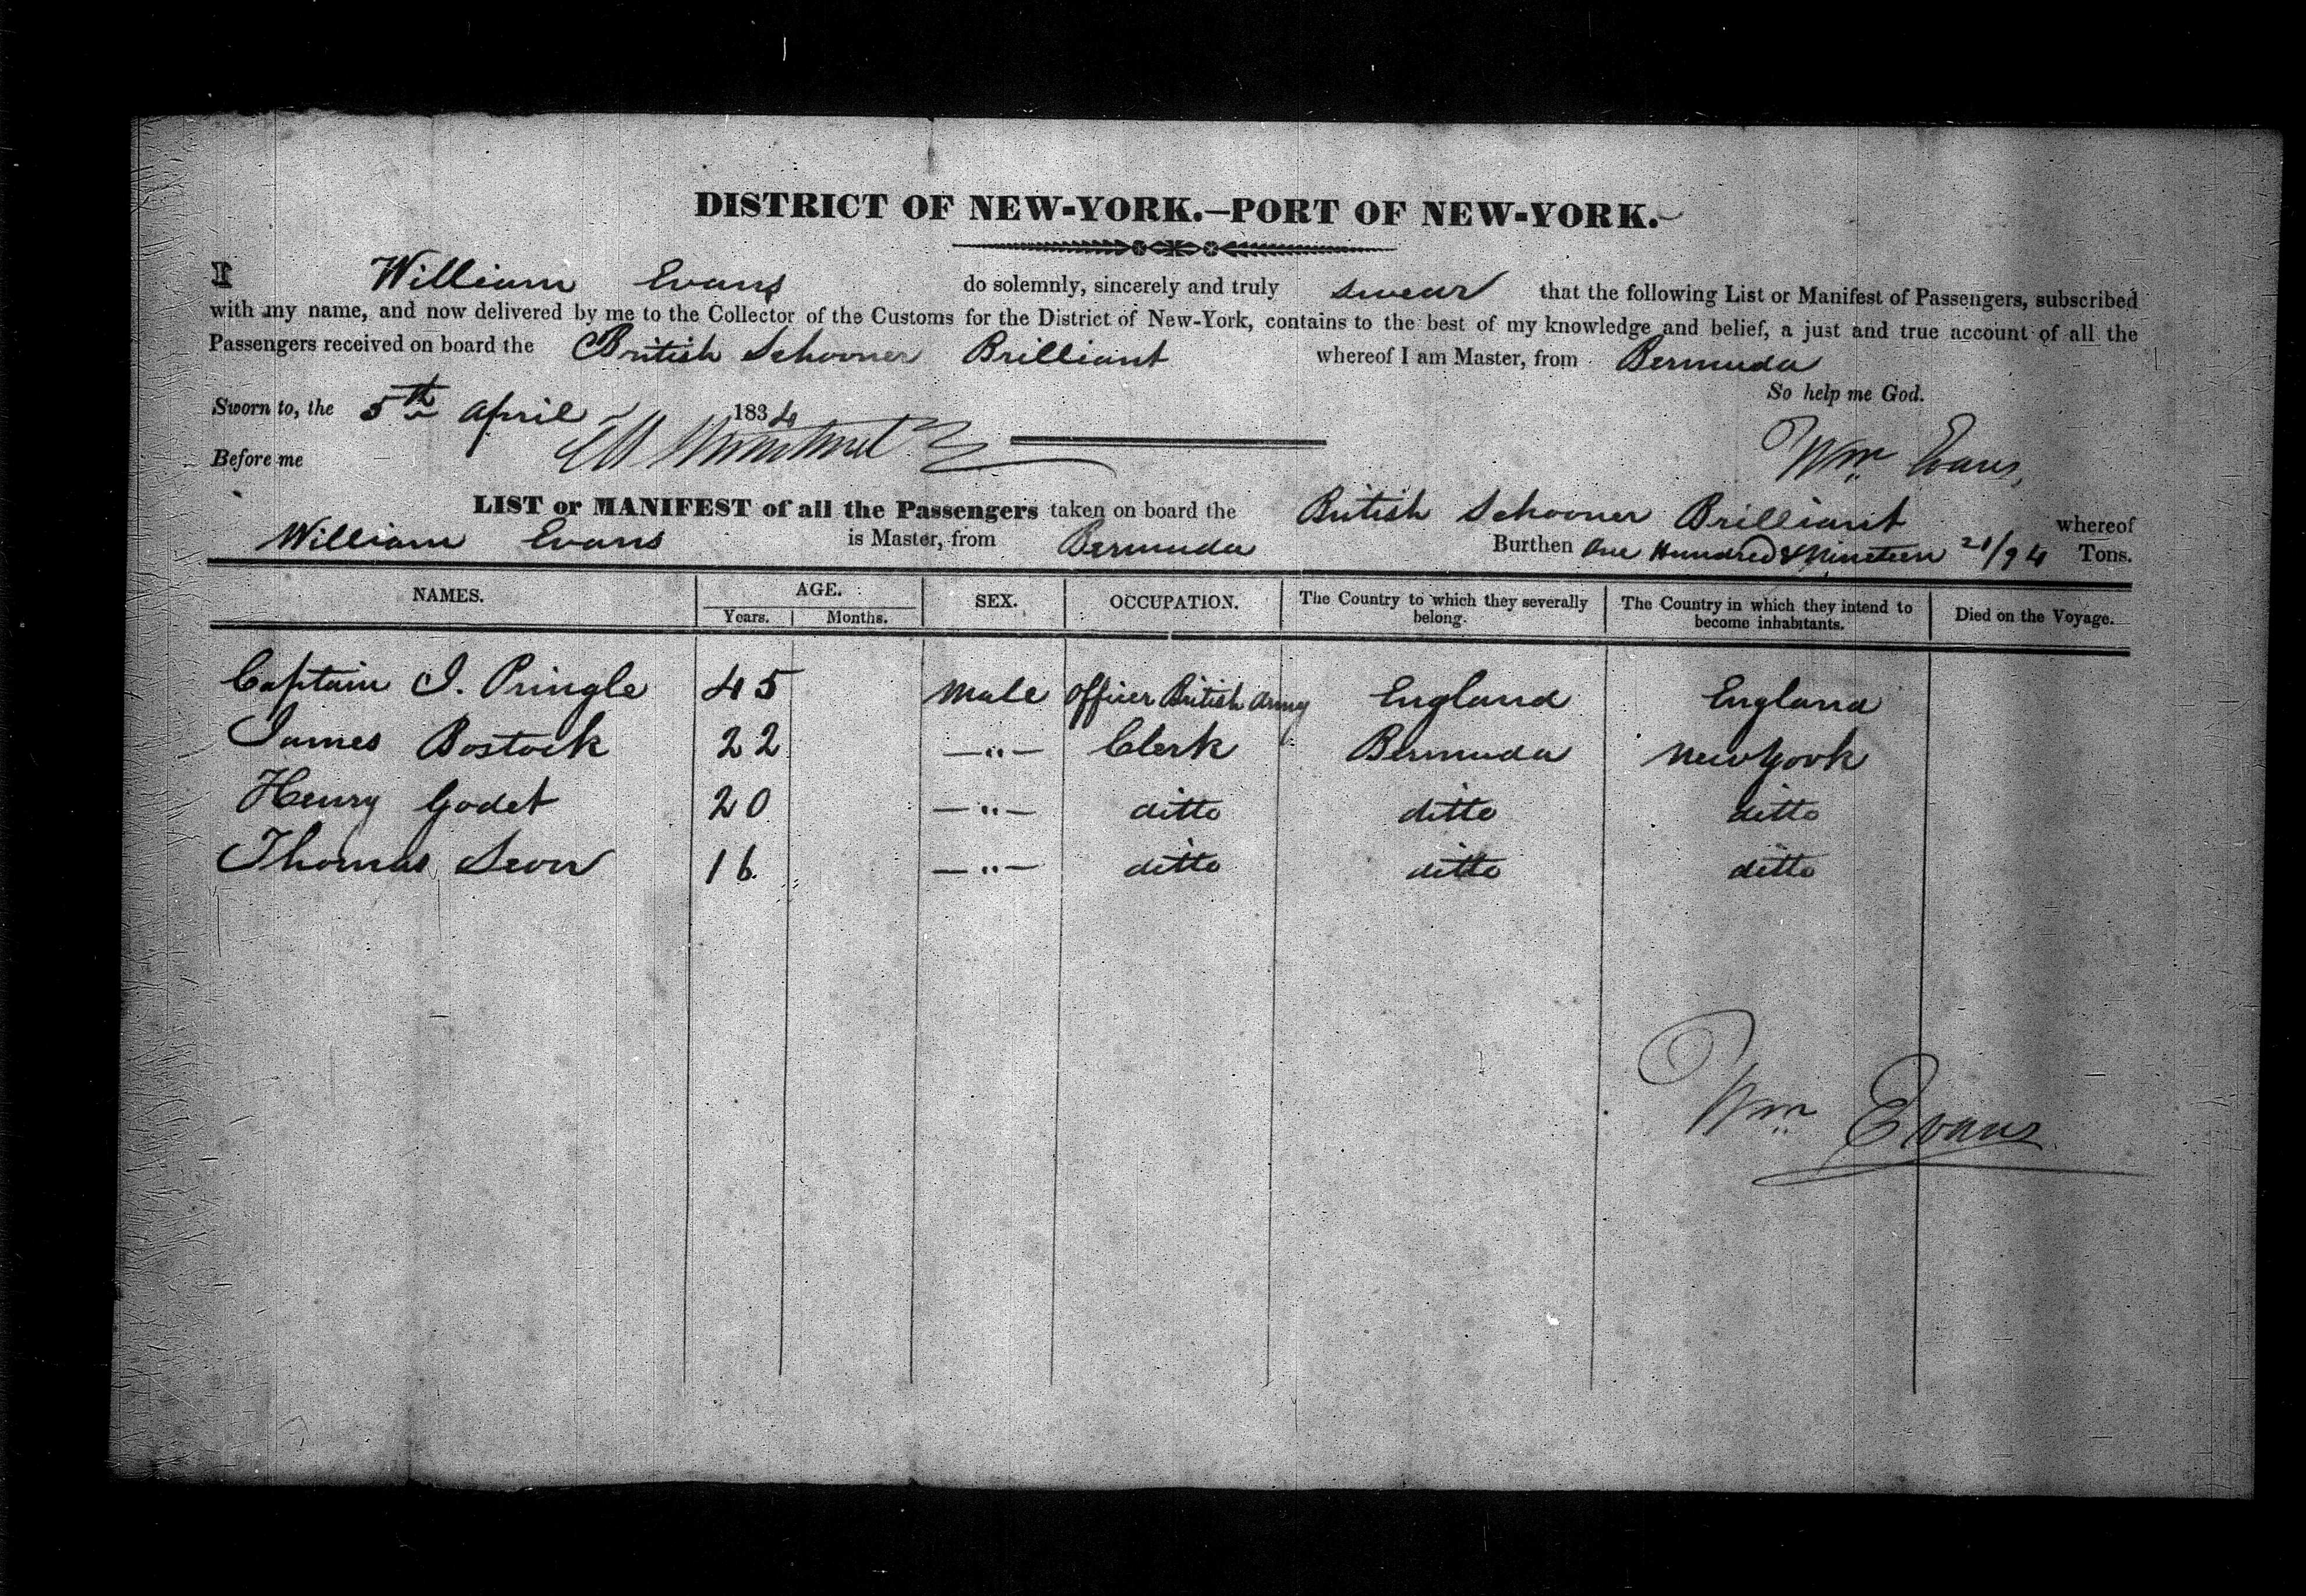 DISTRICT OF NEW-YORK.—PORT OF NEW-YORK.
I William Evans do solemnly, sincerely and truly swear that the following List or Manifest of Passengers, subscribed
with my name, and now delivered by me to the Collector of the Customs for the District of New-York, contains to the best of my knowledge and belief, a just and true account of all the
Passengers received on board the British Schooner Brilliant whereof I am Master, from Bermuda
So help me God.
Sworn to, the 5th April 1834
Before me
Wm Evans,
LIST or MANIFEST of all the Passengers taken on board the British Schooner Brilliant whereof
William Evans is Master, from Bermuda Burthen One Hundred & Nineteen 21/94 Tons.
NAMES. AGE. SEX. OCCUPATION. The Country to which they severally belong. The Country in which they intend to become inhabitants. Died on the Voyage.
Years. Months.
Captain I. Pringle 45 Male Officer British Army England England
James Bostock 22 —"— Clerk Bermuda New York
Henry Godet 20 —"— ditto ditto ditto
Thomas 16 —"— ditto ditto ditto
Wm Evans